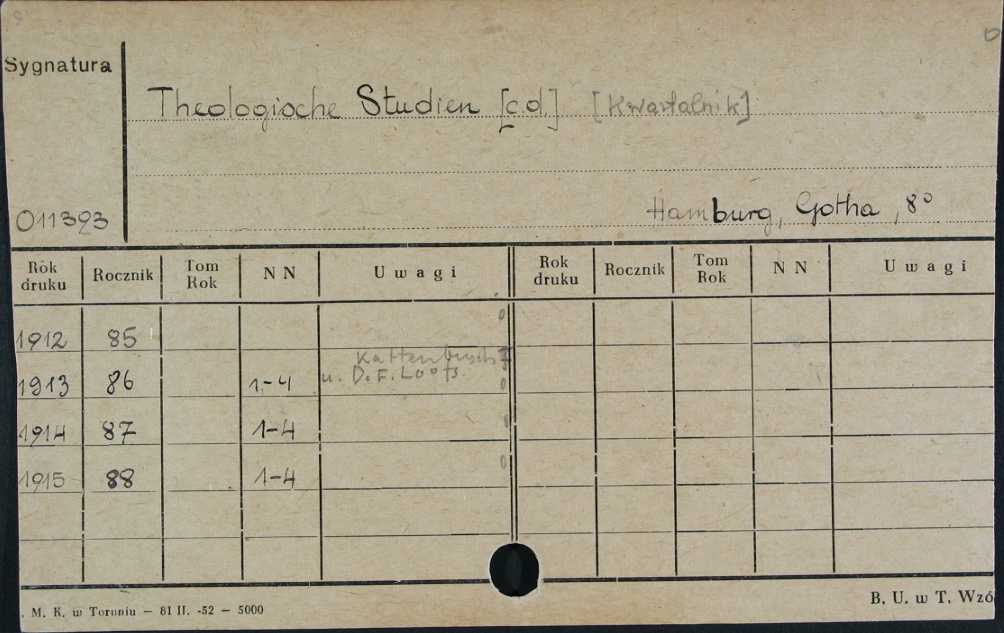 Sygnatura
Theologische Studien [c.d.] [Kwartalnik]
011393
Hamburg, Gotha, 8°
Rok druku Rocznik Tom Rok N N Uwagi Rok druku Rocznik Tom Rok N N Uwagi
1912 85
Kattenbusch
1913 86 1-4 u. D. F. Loofs.
1914 87 1-4
1915 88 1-4
. M. K. w Toruniu — 81 II. -52 — 5000
B. U. w T. Wzó